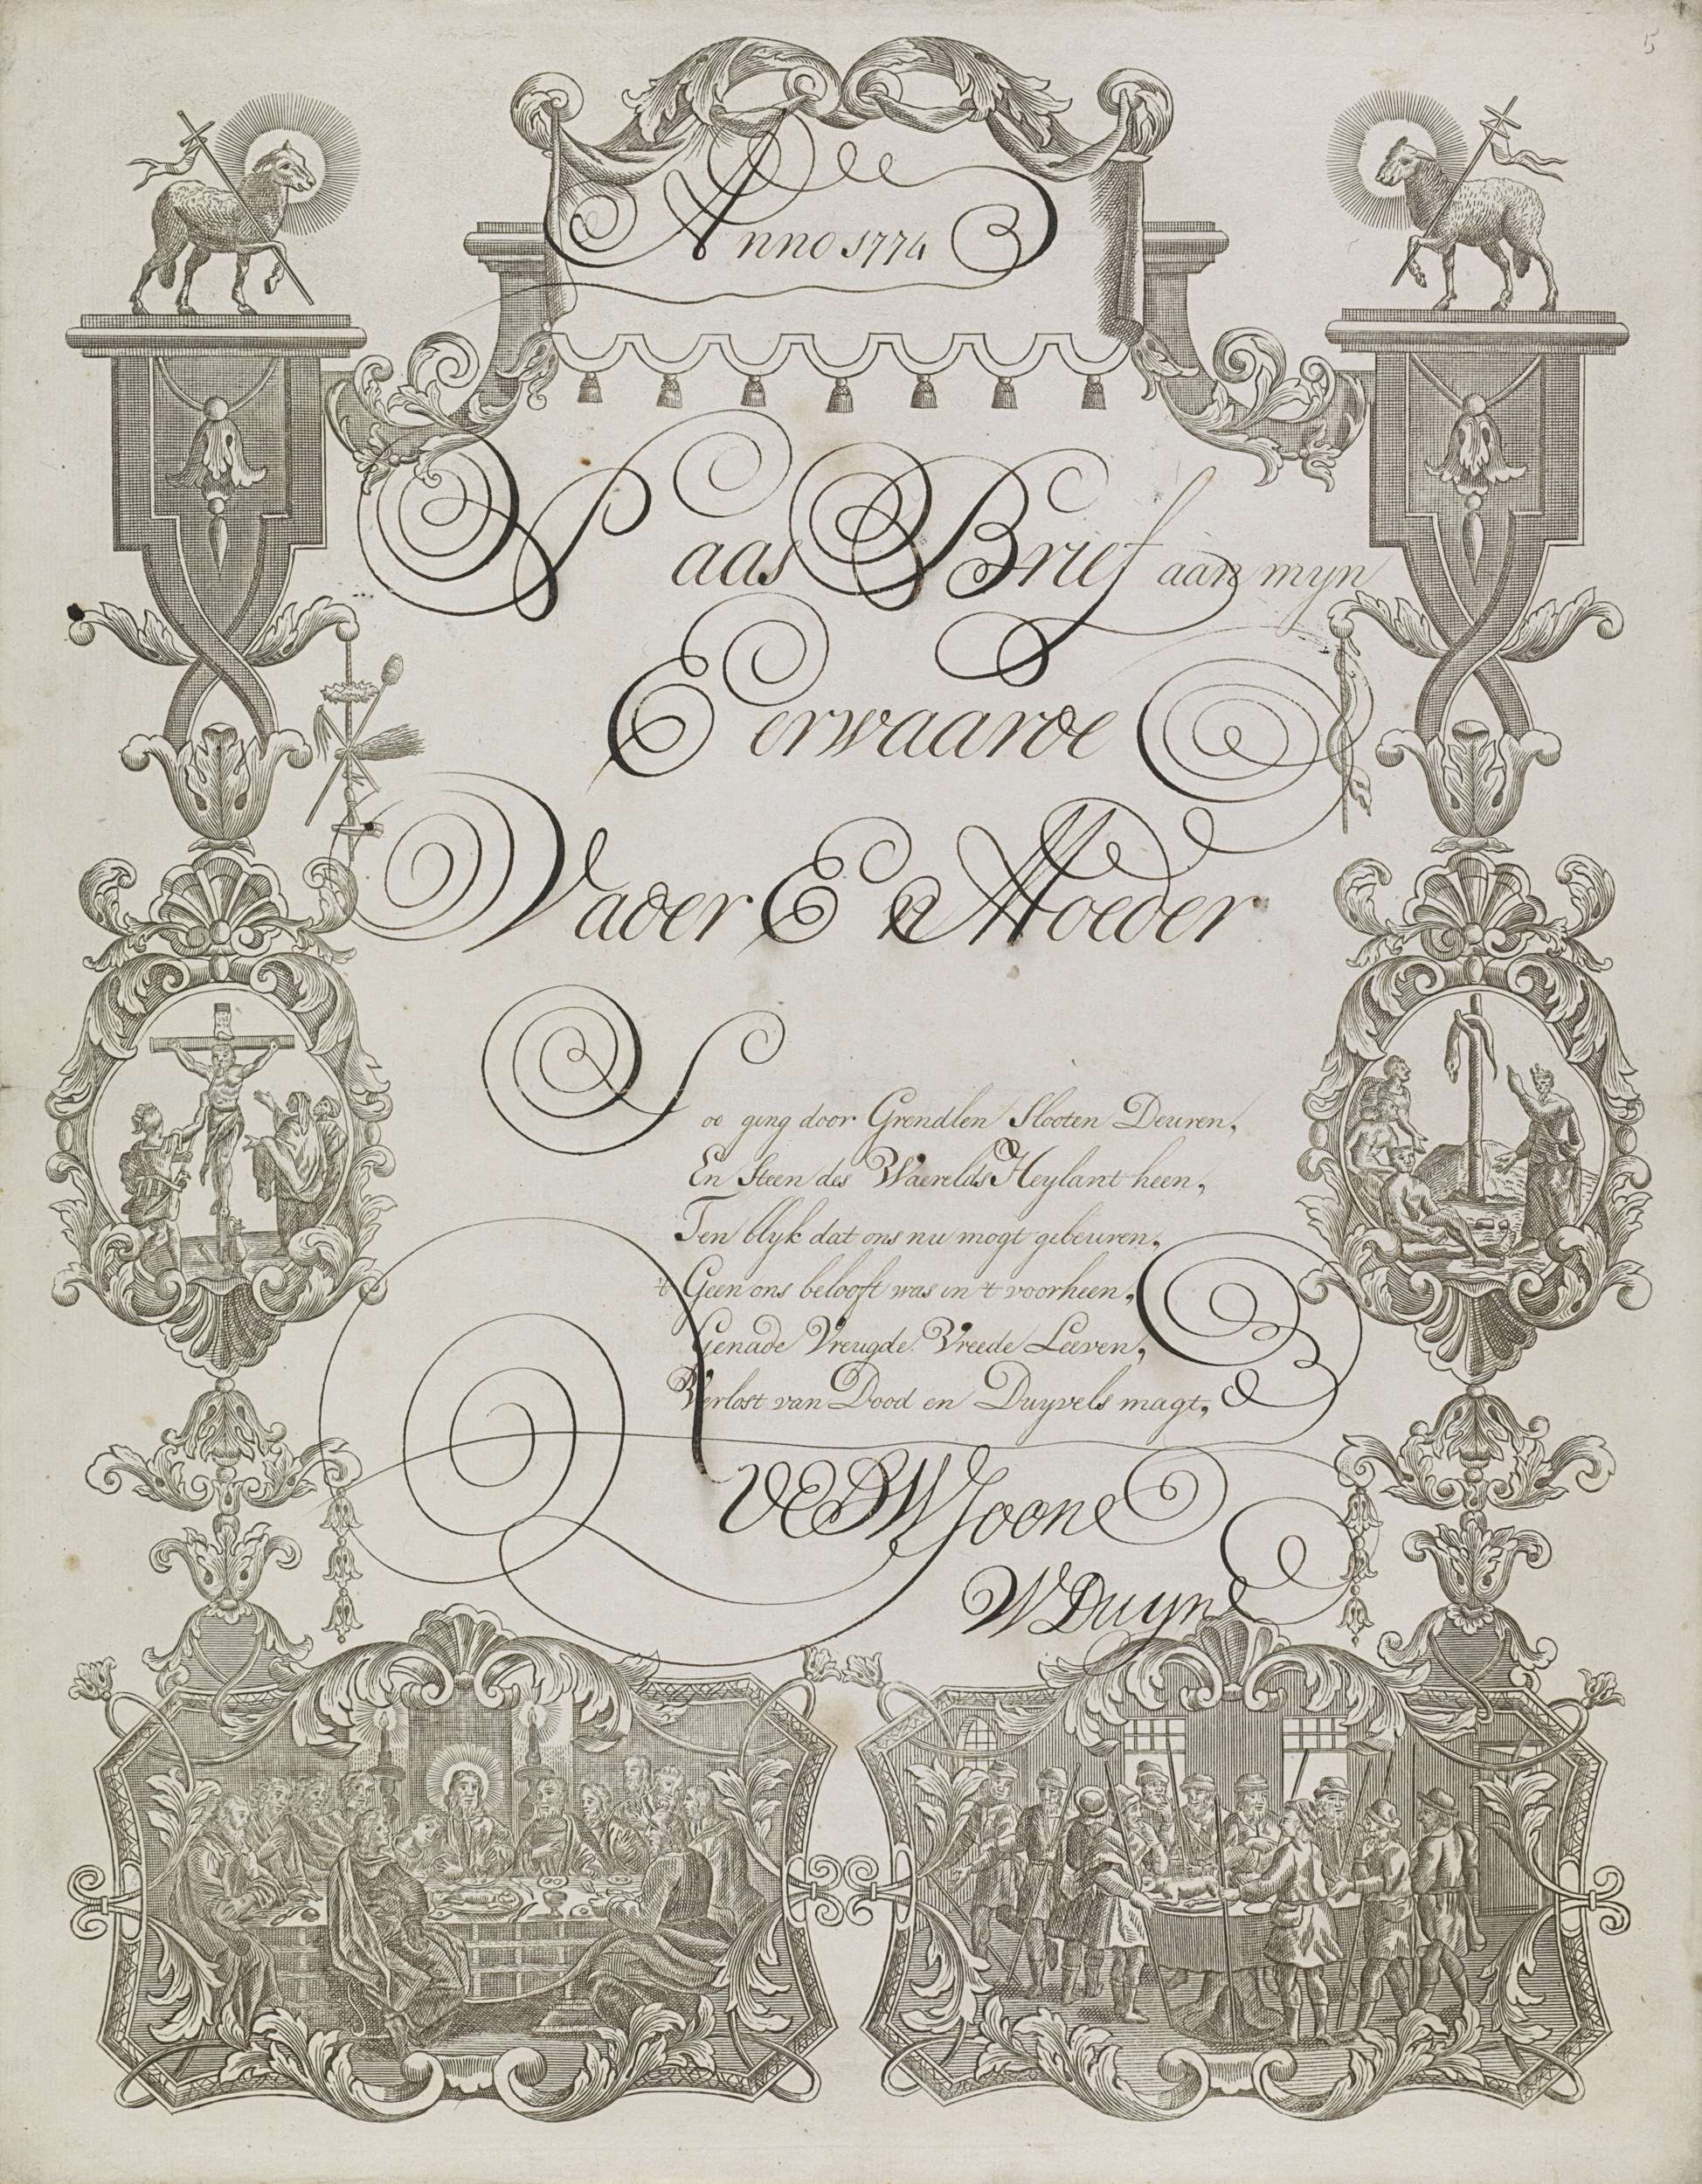 5
Anno 1774
Paas Brief aan myn
Eerwaarde
Vader En Moeder
Soo ging door Grendlen Slooten Deuren,
En Steen des Waerelds Heylant heen,
Ten blyk dat ons nu mogt gebeuren,
't Geen ons belooft was in 't voorheen,
Genade Vreugde Vreede Leeven,
Verlost van Dood en Duyvels magt,
UEDW Zoon
W Duyn